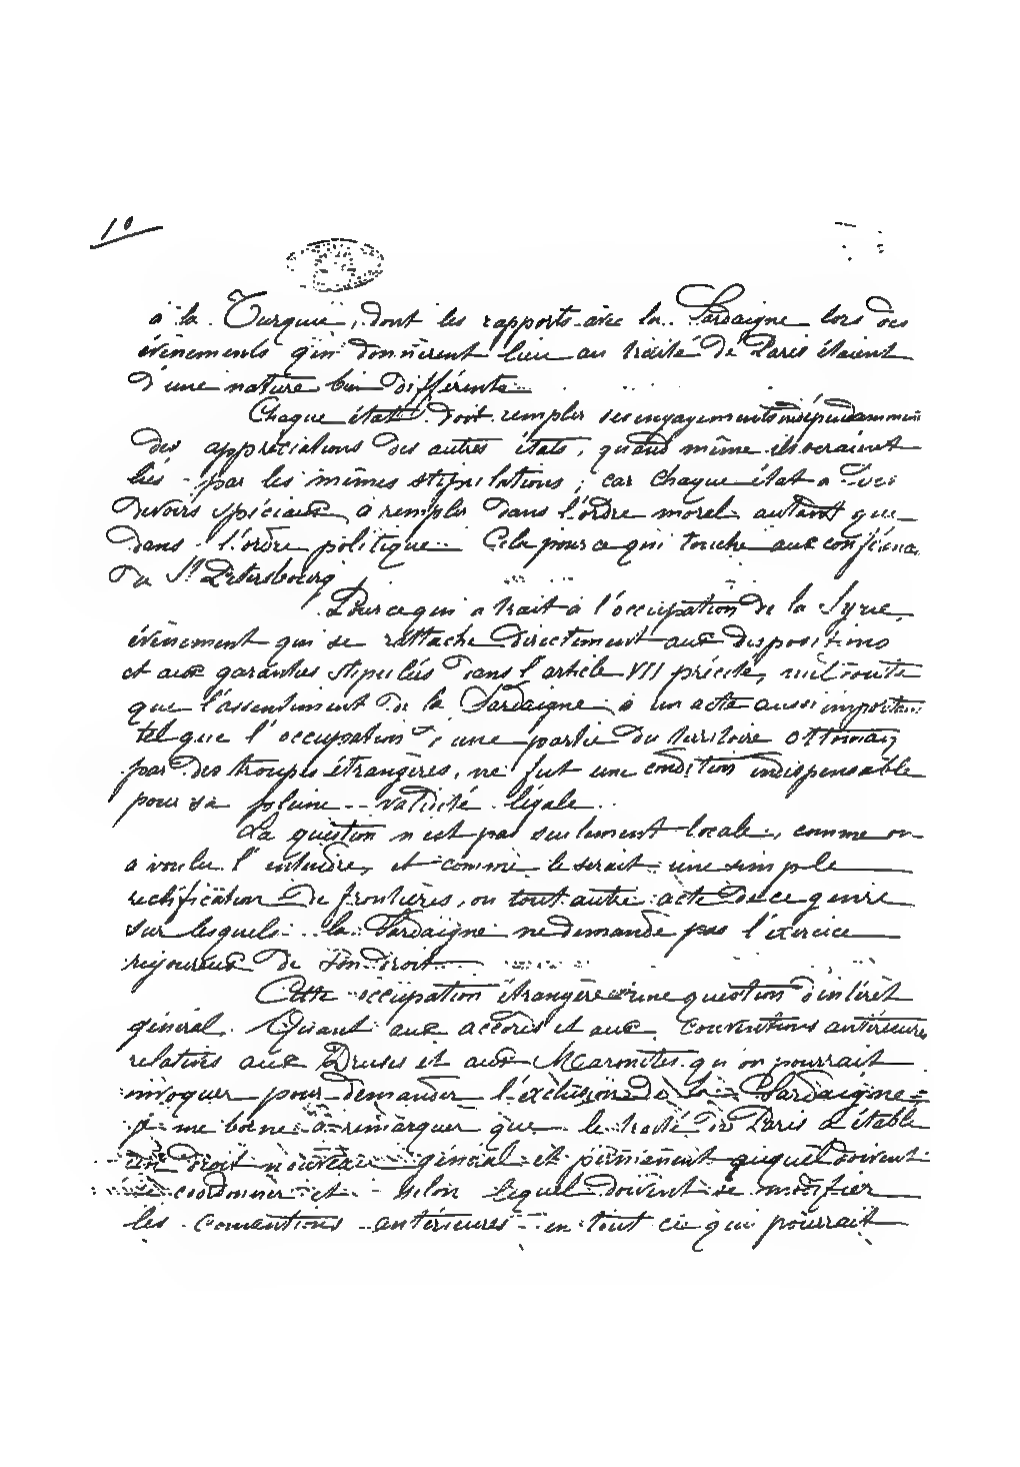 10
à la Turquie, dont les rapports avec la Sardaigne lors des
évènements qui donnèrent lieu au traité de Paris étaient
d'une nature bien différente
Chaque état doit remplir ses engagements indépendamment
des appréciations des autres états, quand même ils seraient
liés par les mêmes stipulations, car chaque état a ses
devoirs spéciaux à remplir dans l'ordre moral autant que
dans l'ordre politique Cela pour ce qui touche aux conférences
de St Pétersbourg
Pour ce qui a trait à l'occupation de la Syrie,
évènement qui se rattache directement aux dispositions
et aux garanties stipulées dans l'article VII précité, nul doute
que l'assentiment de la Sardaigne à un acte aussi important
tel que l'occupation d'une partie du territoire ottoman
par des troupes étrangères, ne fut une condition indispensable
pour sa pleine validité légale.
La question n'est pas seulement locale, comme on
a voulu l'entendre, et comme le serait une simple
rectification de frontières, ou tout autre acte de ce genre
sur lesquels la Sardaigne ne demande pas l'exercice
rigoureux de son droit
Cette occupation étrangère est une question d'intérêt
général. Quant aux accords et aux conventions antérieures
relatifs aux Druses et aux Maronites qu'on pourrait
invoquer pour demander l'exclusion de la Sardaigne
je me borne à remarquer que le traité de Paris a établi
un droit nouveau général et permanent auquel doivent
se coordonner et selon lequel doivent se modifier
les conventions antérieures en tout ce qui pourrait